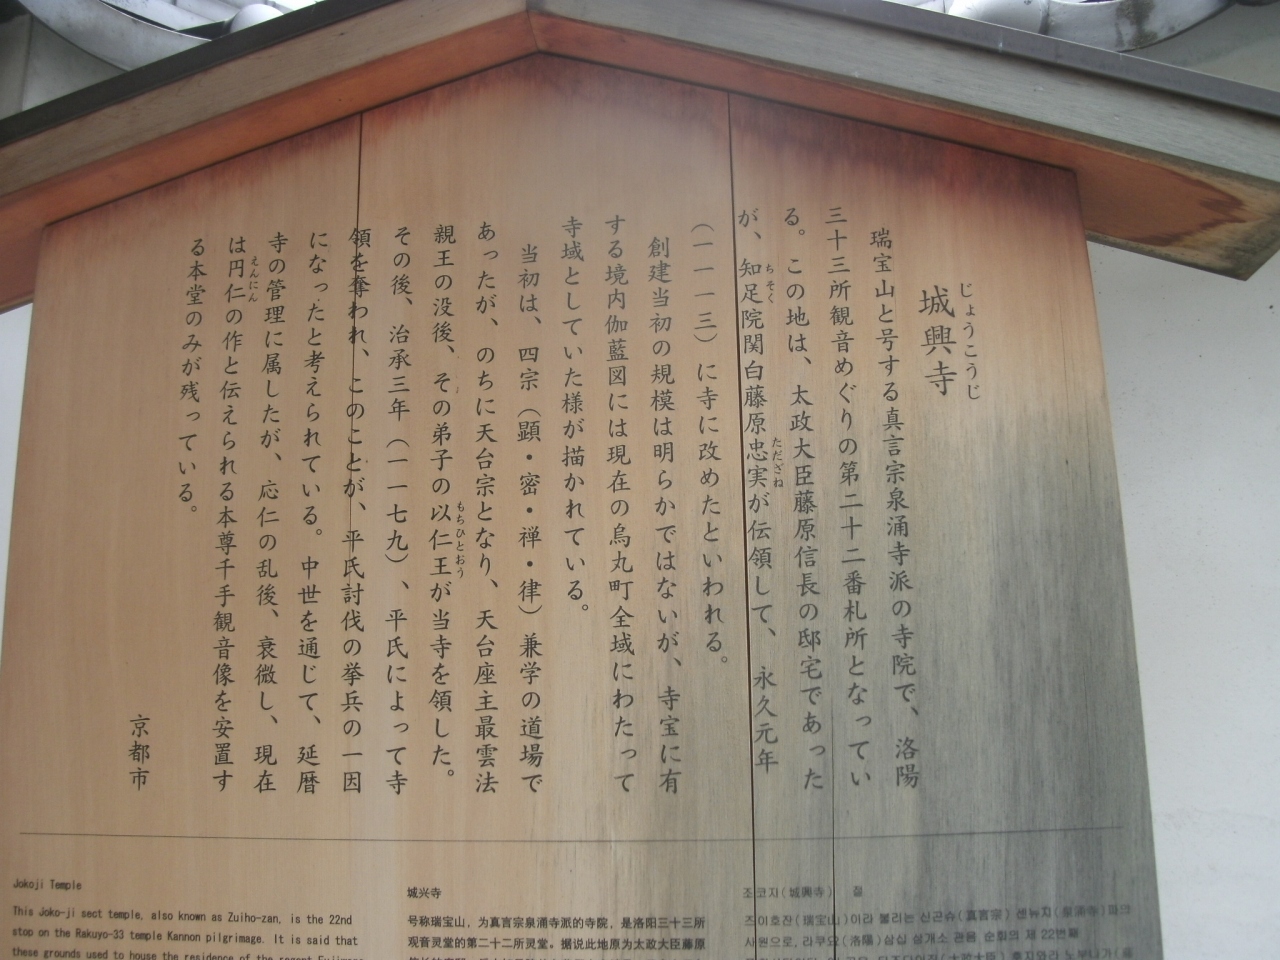 じょうこうじ
城興寺
瑞宝山と号する真言宗泉涌寺派の寺院で、洛陽
三十三所観音めぐりの第二十二番札所となってい
る。この地は、太政大臣藤原信長の邸宅であった
が、知足院関白藤原忠実が伝領して、永久元年
ちそく
ただざね
（一一一三）に寺に改めたといわれる。
創建当初の規模は明らかではないが、寺宝に有
する境内伽藍図には現在の烏丸町全域にわたって
寺域としていた様が描かれている。
当初は、四宗（顕・密・禅・律）兼学の道場で
あったが、のちに天台宗となり、天台座主最雲法
親王の没後、その弟子の以仁王が当寺を領した。
もちひとおう
その後、治承三年（一一七九）、平氏によって寺
領を奪われ、このことが、平氏討伐の挙兵の一因
になったと考えられている。中世を通じて、延暦
寺の管理に属したが、応仁の乱後、衰微し、現在
は円仁の作と伝えられる本尊千手観音像を安置す
えんにん
る本堂のみが残っている。
京都市
Jokoji Temple
This Joko-ji sect temple, also known as Zuiho-zan, is the 22nd
stop on the Rakuyo-33 temple Kannon pilgrimage. It is said that
these grounds used to house the residence of the regent Fujiwara
城兴寺
号称瑞宝山，为真言宗泉涌寺派的寺院，是洛阳三十三所
观音灵堂的第二十二所灵堂。据说此地原为太政大臣藤原
조코지(城興寺) 절
즈이호잔(瑞宝山)이라 불리는 신곤슈(真言宗) 센뉴지(泉涌寺)파의
사원으로, 라쿠요(洛陽)삼십 삼개소 관음 순회의 제 22번째